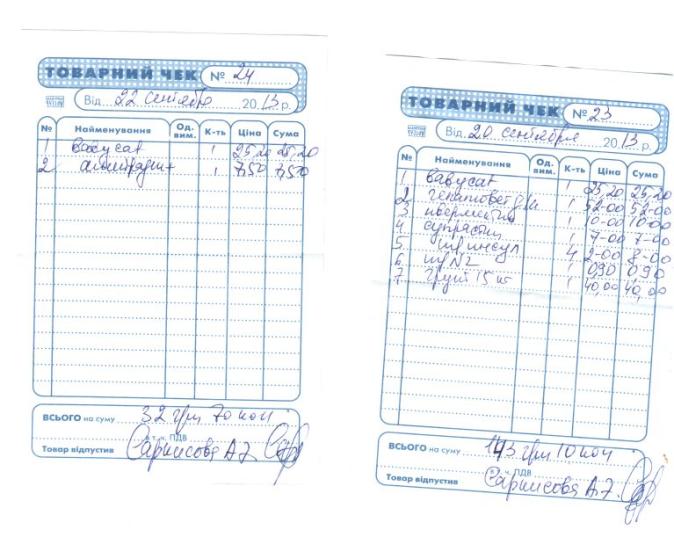 ТОВАРНИЙ ЧЕК № 24
Від 22 сентября 2013 р.
№ Найменування Од. вим. К-ть Ціна Сума
1 Babycat 1 25,20 25,20
2 1 7,50 7,50
ВСЬОГО на суму 32 грн 70 коп
в т. ч. ПДВ
Товар відпустив Саркисова А.Г.
ТОВАРНИЙ ЧЕК № 23
Від 20 сентября 2013 р.
№ Найменування Од. вим. К-ть Ціна Сума
1 Babycat 1 25,20 25,20
2 гепатовет 1 52-00 52-00
3 ивермектин 1 10-00 10-00
4 супрастин 1 7-00 7-00
5 шпр инсул 4 2-00 8-00
6 шпр №2 1 0,90 0,90
7 грунт 15 кг 1 40,00 40,00
ВСЬОГО на суму 143 грн 10 коп
в т. ч. ПДВ
Товар відпустив Саркисова А.Г.